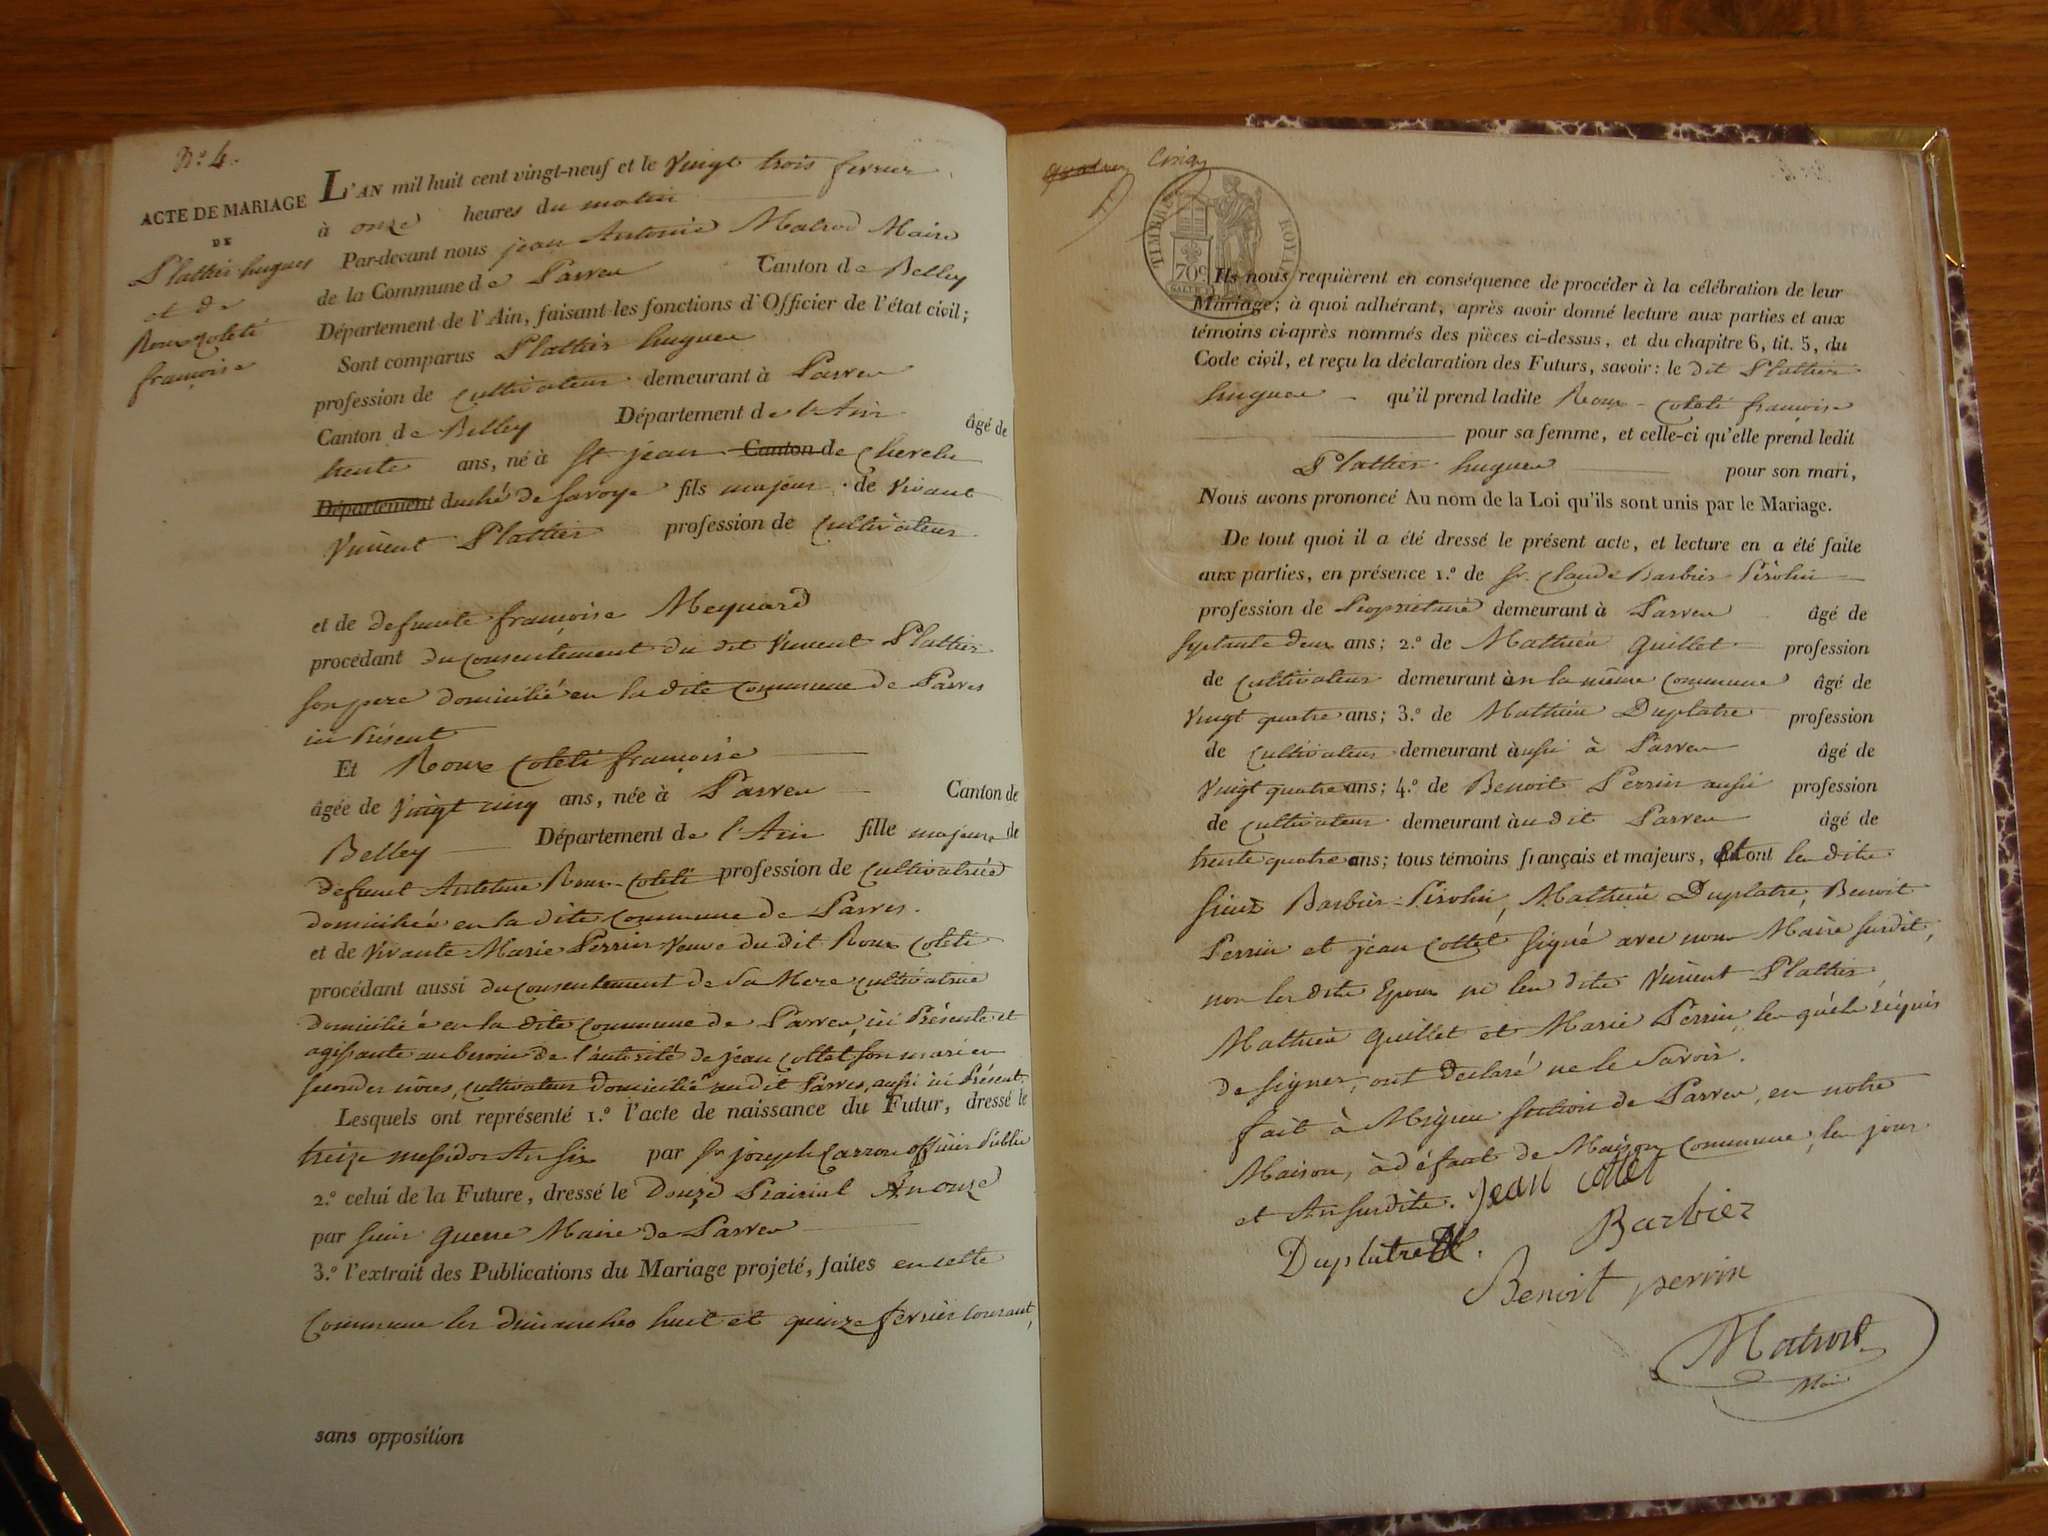 N.º 4.
ACTE DE MARIAGE
DE
Plattier hugues
et de
Roux Coleti
françoise
L'AN mil huit cent vingt-neuf et le Vingt trois fevrier
à onze heures du matin
Par-devant nous jean Antoine Matrod Maire
de la Commune de Parves Canton de Belley
Département de l'Ain, faisant les fonctions d'Officier de l'état civil;
Sont comparus Plattier hugues
profession de cultivateur demeurant à Parves
Canton de Belley Département de l'Ain âgé de
trente ans, né à St jean Canton de Chevelu
Département duché de Savoye fils majeur de vivant
Vincent Plattier profession de Cultivateur
et de defunte françoise Meynard
procédant du consentement du dit Vincent Plattier
son pere domicilié en la dite commune de Parves
ici Présent
Et Roux Coleti françoise
âgée de Vingt cinq ans, née à Parves Canton de
Belley Département de l'Ain fille majeure de
defunt Antoine Roux-Coleti profession de Cultivatrice
domiciliée en la dite Commune de Parves.
et de Vivante Marie Perrin veuve du dit Roux Coleti
procédant aussi du consentement de Sa Mere cultivatrice
domiciliée en la dite commune de Parves, ici Présente et
agissante au besoin de l'autorité de jean Collet son mari en
secondes nôces, cultivateur domicilié au dit Parves, aussi ici Présent.
Lesquels ont représenté 1.º l'acte de naissance du Futur, dressé le
treize messidor An six par Sr joseph Carron officier Public
2.º celui de la Future, dressé le Douze Prairial An onze
par sieur Guerre Maire de Parves
3.º l'extrait des Publications du Mariage projeté, faites en cette
Commune les dimanches huit et quinze fevrier courant,
sans opposition
quatre Cinq
TIMBRE ROYAL
70c
Ils nous requièrent en conséquence de procéder à la célébration de leur
Mariage; à quoi adhérant, après avoir donné lecture aux parties et aux
témoins ci-après nommés des pièces ci-dessus, et du chapitre 6, tit. 5, du
Code civil, et reçu la déclaration des Futurs, savoir: le dit Plattier
hugues qu'il prend ladite Roux-Coleti françoise
pour sa femme, et celle-ci qu'elle prend ledit
Plattier hugues pour son mari,
Nous avons prononcé Au nom de la Loi qu'ils sont unis par le Mariage.
De tout quoi il a été dressé le présent acte, et lecture en a été faite
aux parties, en présence 1.º de Sr. Claude Barbier Pirolin
profession de Proprietaire demeurant à Parves âgé de
septante deux ans; 2.º de Mathieu Guillet profession
de cultivateur demeurant en la même commune âgé de
Vingt quatre ans; 3.º de Mathieu Duplatre profession
de cultivateur demeurant aussi à Parves âgé de
Vingt quatre ans; 4.º de Benoit Perrin aussi profession
de cultivateur demeurant audit Parves âgé de
trente quatre ans; tous témoins français et majeurs, Et ont les dits
sieur Barbier-Pirolin, Mathieu Duplatre, Benoit
Perrin et jean Collet signé avec nous Maire susdit,
non les dits Epoux ni les dits Vincent Plattier
Mathieu Guillet et Marie Perrin, les quels réquis
de signer, ont declaré ne le Savoir.
fait à section de Parves, en notre
Maison, à défaut de Maison Commune, les jour
et An susdits. Jean Collet
Duplatre M. Barbier
Benoit perrin
Matrod
Maire